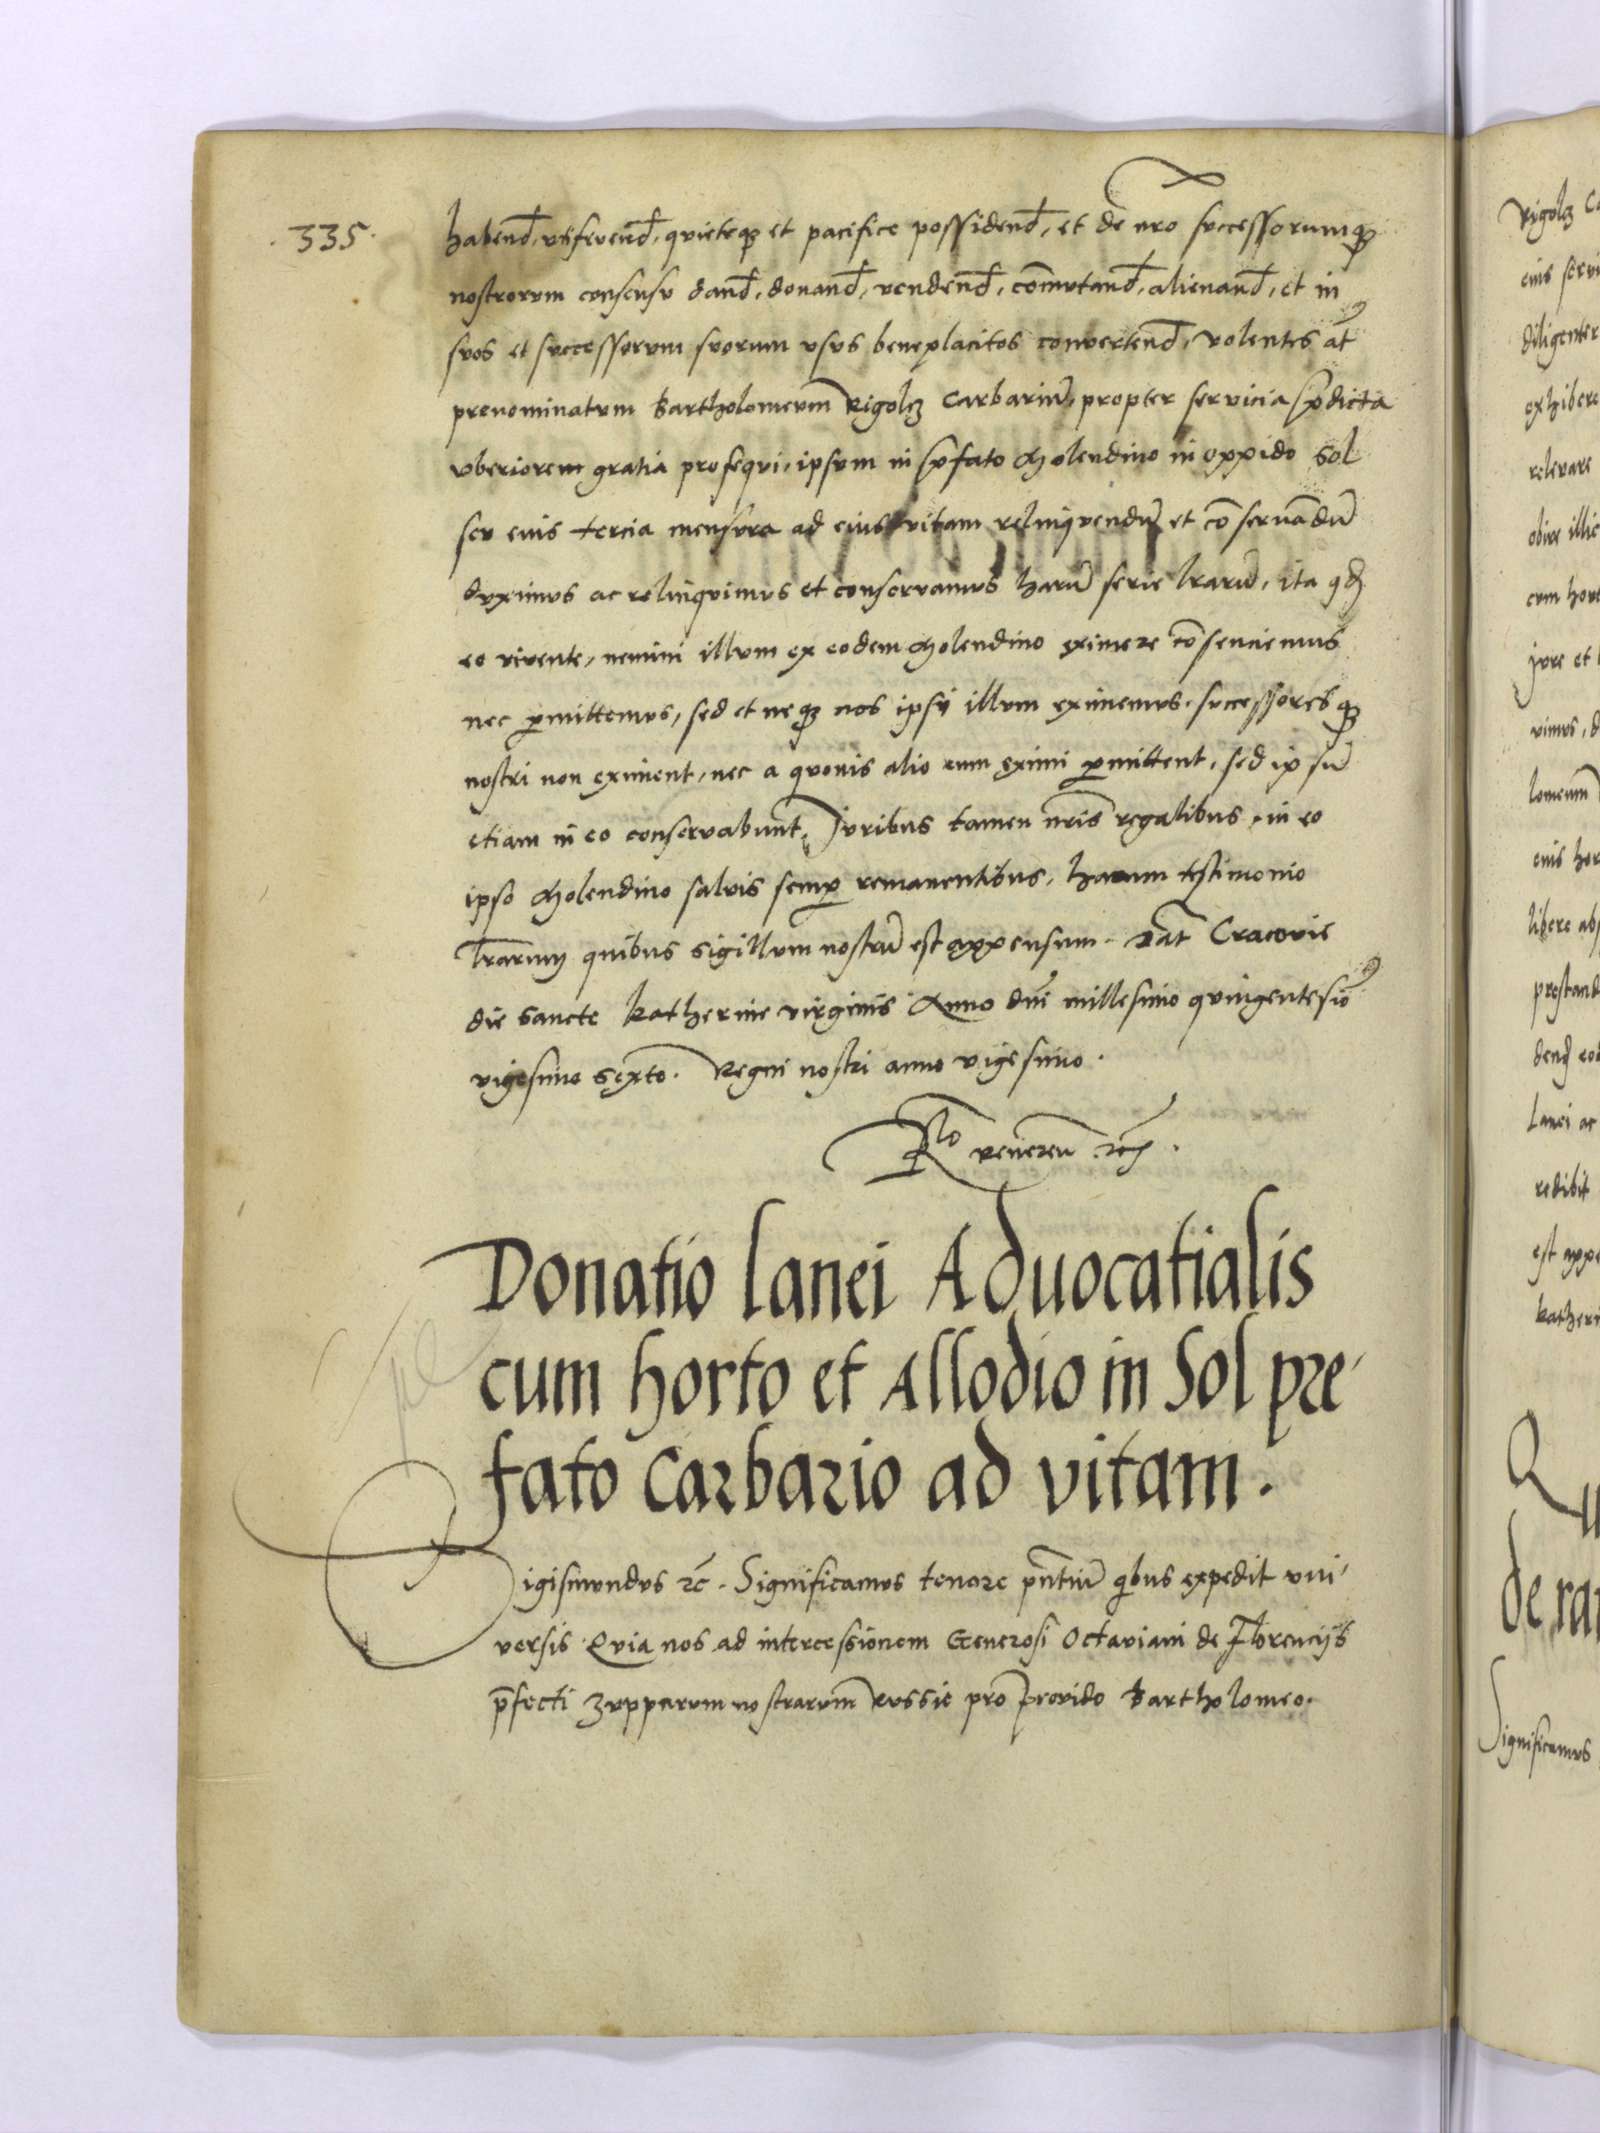 335.
habend, utifruend, quieteq3 et pacifice possidend, et de nro successorumq3
nostrorum consensu dand, donand, vendend, comutand, alienand, et in
suos et successorum suorum usus beneplacitos convertend, volentes at
prenominatum Bartholomeum Rigolcz Carbariu, propter servicia spdicta
uberiorem gratia prosequi, ipsum in spfato Molendino in oppido Sol
seu eius tercia mensura ad eius vitam relinquendu et coservadu
duximus ac relinquimus et conservamus haru serie lraru, ita qd
eo vivente, nemini illum ex eodem Molendino eximere cosenciemus
nec pmittemus, sed et neq3 nos ipsi illum eximemus, successoresq3
nostri non eximent, nec a quovis alio eum eximi pmittent, sed ipsu
etiam in eo conservabunt, Juribus tamen nris regalibus, in eo
ipso Molendino salvis semp remanentibus, harum testimonio
lrarum quibus sigillum nostru est appensum. Dat Cracovie
die sancte Katherine virginis Anno dni millesimo quingentesio
vigesimo sexto. Regni nostri anno vigesimo.
Rlo veneren rc.
Donatio lanei Aduocatialis
cum horto et Allodio in Sol pre,
fato Carbario ad vitam.
Sigismundus rc. Significamus tenore pntiu qbus expedit uni,
versis Quia nos ad intercessionem Generosi Octaviani de Florencijs
pfecti zupparum nostrarum Russie pro provido Bartholomeo.
Rigolcz
eius servi
diligenter
exhibere
relevare
obire illic
cum hort
jure et
vimus, d
lomeum
eius hor
libere abs
prestand
dend eod
Lanei ac
redibit
est appe
Kather
Q
de ra
Significamus